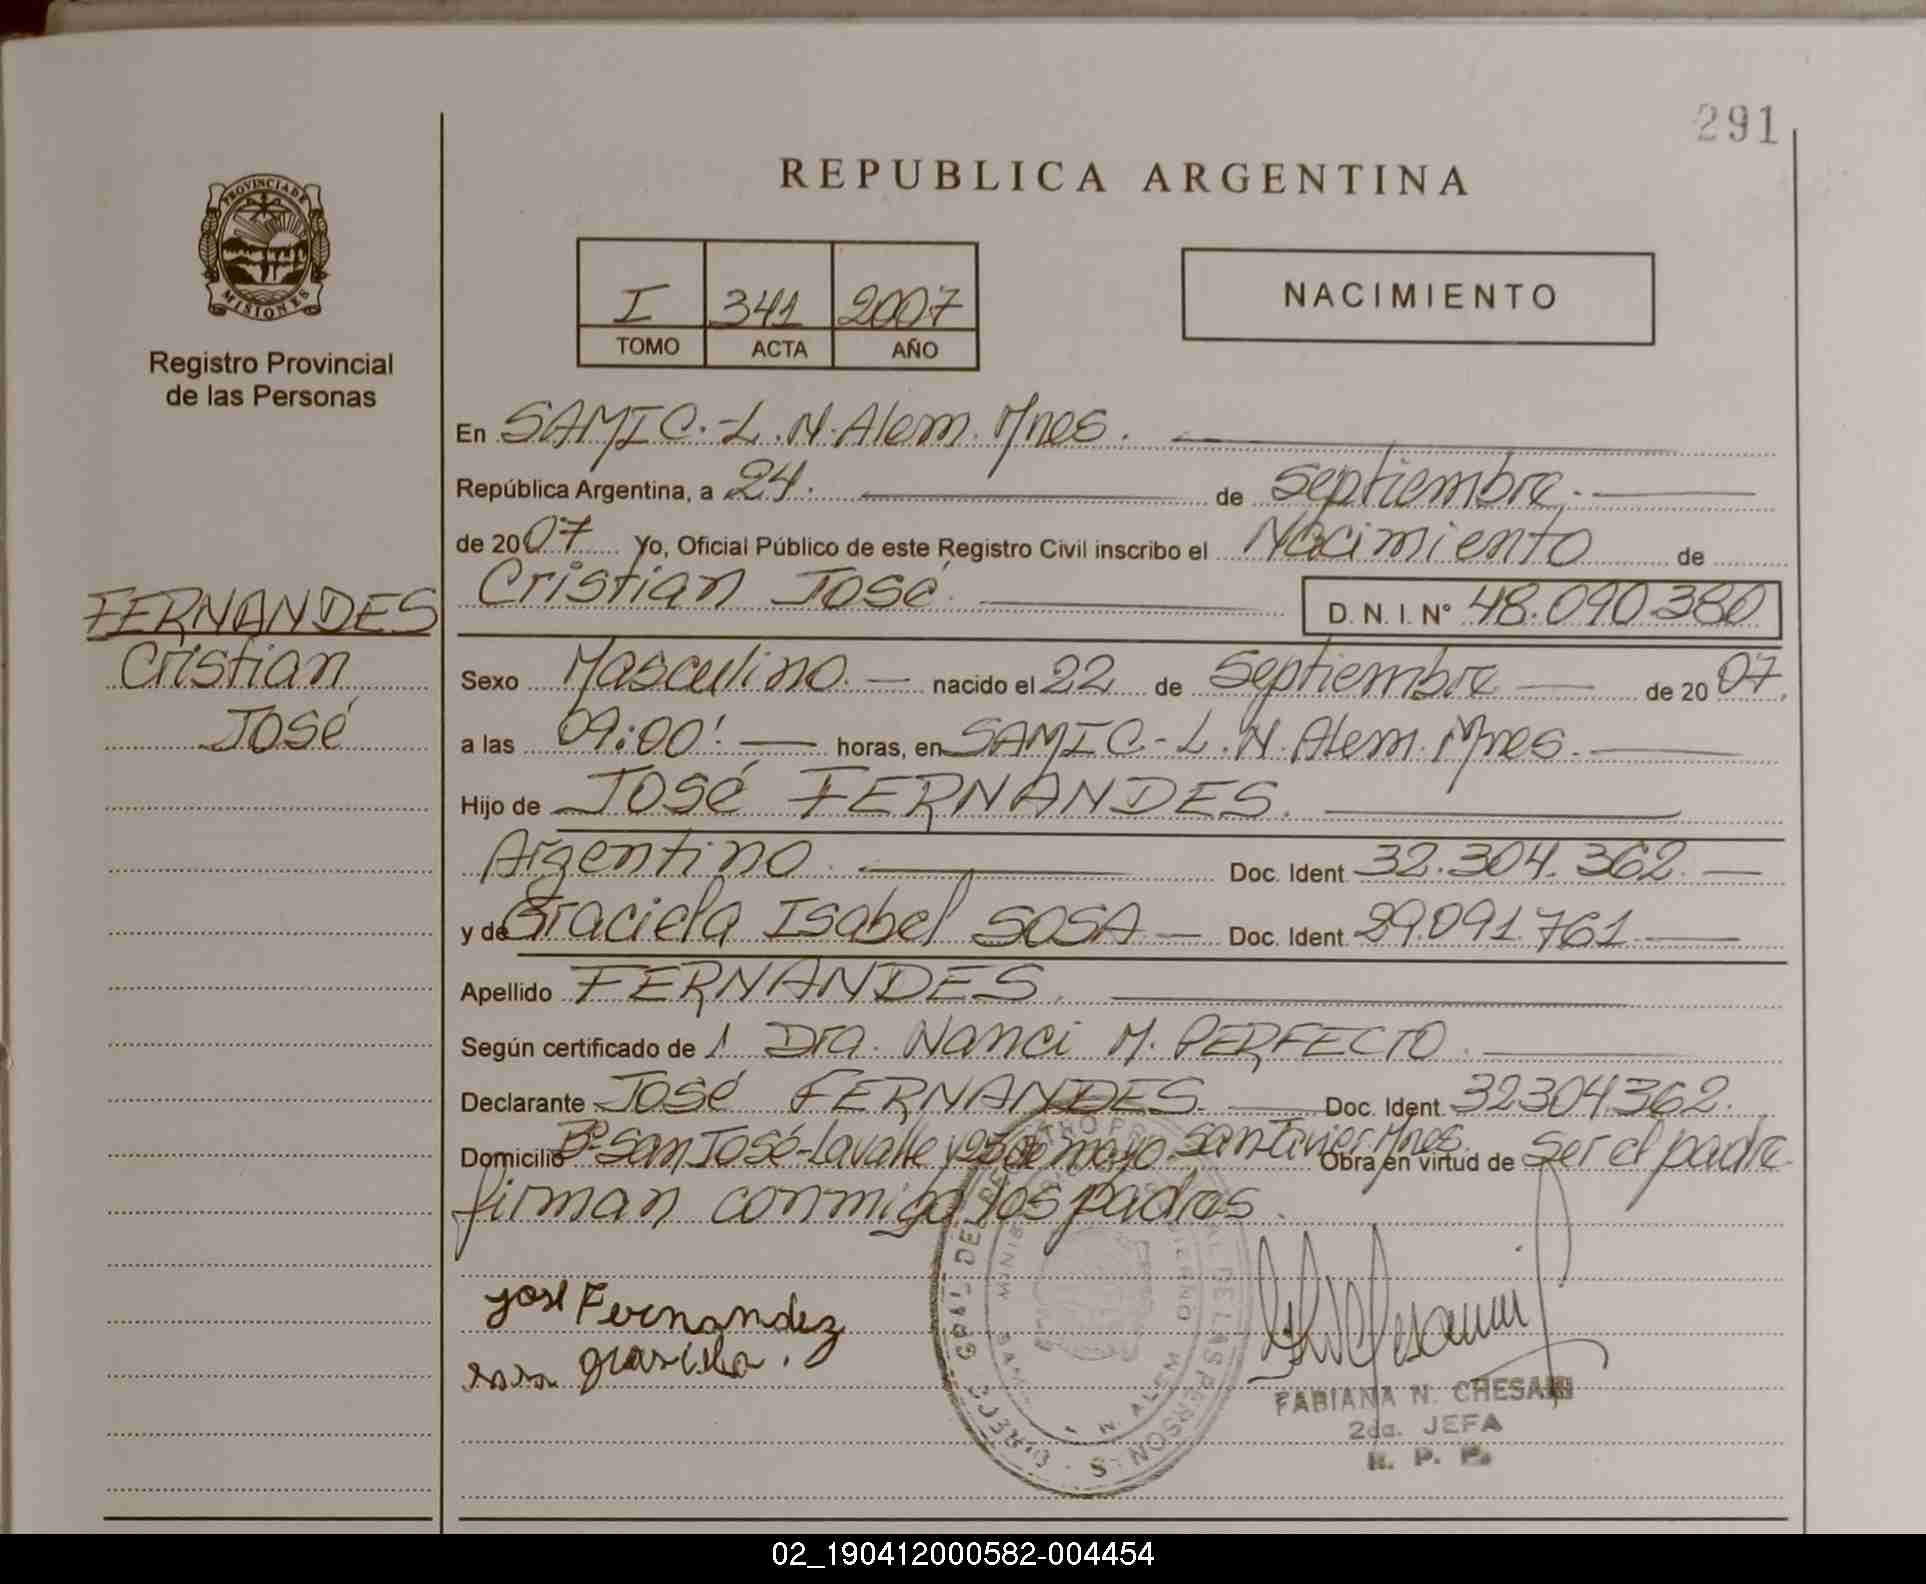 291
REPUBLICA ARGENTINA
PROVINCIA DE
MISIONES
Registro Provincial
de las Personas
I 341 2007
TOMO ACTA AÑO
NACIMIENTO
En SAMIC.-L.N.Alem.Mnes.
República Argentina, a 24. de septiembre.
de 2007 Yo, Oficial Público de este Registro Civil inscribo el Nacimiento de
Cristian José. D.N.I. N° 48.090.380
FERNANDES
Cristian
José
Sexo Masculino. nacido el 22 de Septiembre de 2007.
a las 09:00'. horas, en SAMIC-L.N.Alem.Mnes.
Hijo de JOSÉ FERNANDES.
Argentino. Doc. Ident. 32.304.362.
y de Graciela Isabel SOSA Doc. Ident. 29.091.761
Apellido FERNANDES.
Según certificado de 1 Dra. Nanci M. PERFECTO.
Declarante José FERNANDES. Doc. Ident. 32304362.
Domicilio B° San José-Lavalle y 25 de mayo San Javier Mnes. Obra en virtud de Ser el padre
firman conmigo los padres.
jose Fernandez
sosa grasiela.
N. ALEM
DE LAS PERSONAS
FABIANA N. CHESANI
2da. JEFA
R. P. P.
02_190412000582-004454